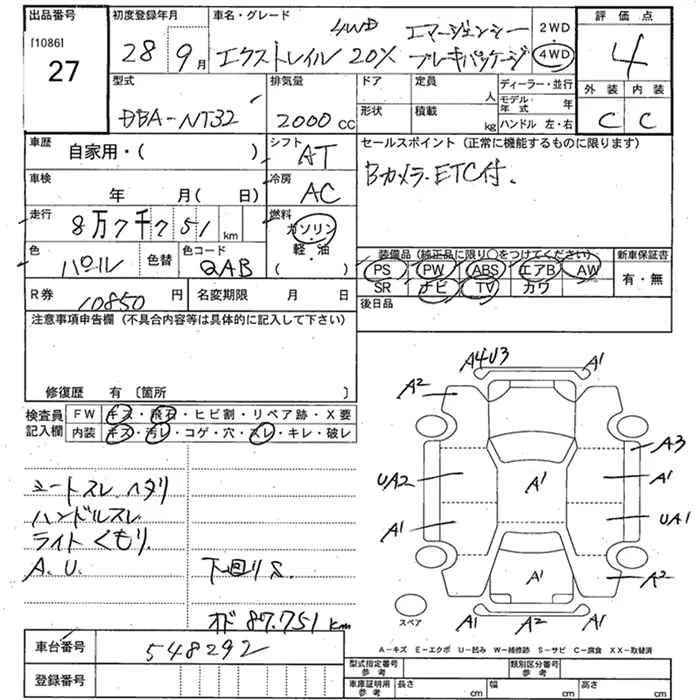 出品番号
[1086]
27
初度登録年月
28 9月
車名・グレード
4WD
エクストレイル 20X
エマージェンシー
ブレーキパッケージ
2WD
4WD
評価点
4
外装 内装
C C
型式
DBA-NT32
排気量
2000cc
ドア 定員
人
形状 積載
kg
ディーラー・並行
モデル年式 年
ハンドル 左・右
車歴
自家用・( )
シフト
AT
車検
年 月( 日)
冷房
AC
走行
8万7千751km
燃料
ガソリン
・
軽・油
( )
色
パール
色替
色コード
QAB
R券
10850円
名変期限 月 日
セールスポイント(正常に機能するものに限ります)
Bカメラ.ETC付.
装備品(純正品に限り○をつけてください)
PS PW ABS エアB AW
SR ナビ TV カワ
新車保証書
有・無
後日品
注意事項申告欄(不具合内容等は具体的に記入して下さい)
修復歴 有〔箇所 〕
検査員記入欄
FW キズ・飛石・ヒビ割・リペア跡・X要
内装 キズ・汚レ・コゲ・穴・スレ・キレ・破レ
シートスレ.ヘタリ
ハンドルスレ
ライトくもり.
A.U.
下回りS.
オド 87.751km
A4U3
A1
A2
A3
UA2
A1
A1
A1
UA1
A1
A2
A1 A2 A1
スペア
A-キズ E-エクボ U-凹み W-補修跡 S-サビ C-腐食 XX-取替済
車台番号
548292
登録番号
型式指定番号
参考
類別区分番号
参考
車庫証明用
参考
長さ cm 幅 cm 高さ cm